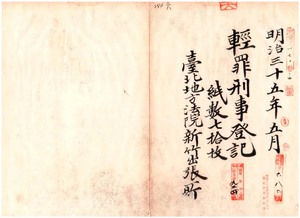 明治三十五年五月
輕罪刑事登記
紙數七拾枚
臺北地方法院新竹出張所